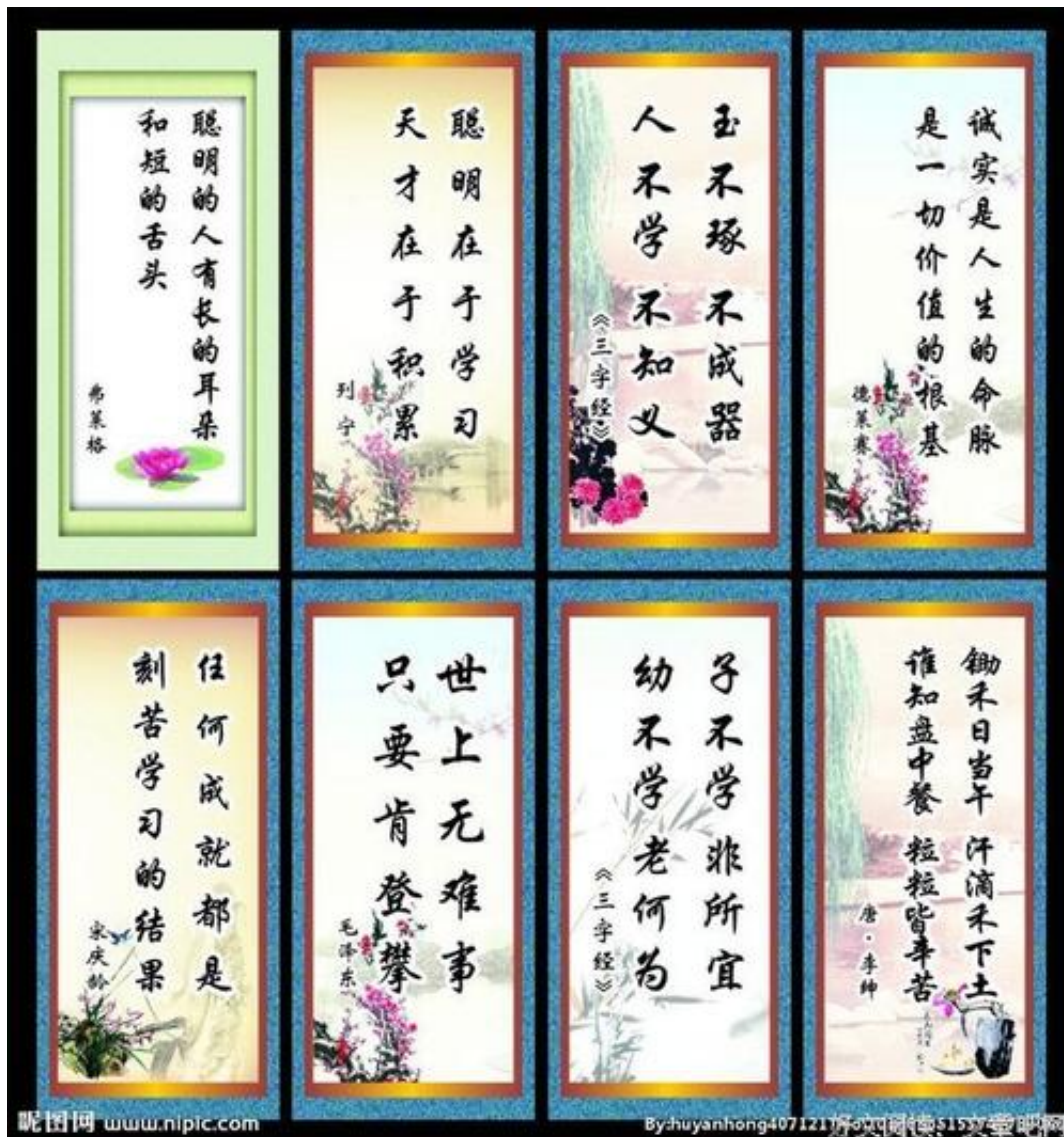 聪明的人有长的耳朵
和短的舌头
弗莱格
聪明在于学习
天才在于积累
列宁
玉不琢 不成器
人不学 不知义
《三字经》
诚实是人生的命脉
是一切价值的根基
德莱赛
任何成就都是
刻苦学习的结果
宋庆龄
世上无难事
只要肯登攀
毛泽东
子不学 非所宜
幼不学 老何为
《三字经》
锄禾日当午 汗滴禾下土
谁知盘中餐 粒粒皆辛苦
唐·李绅
昵图网 www.nipic.com